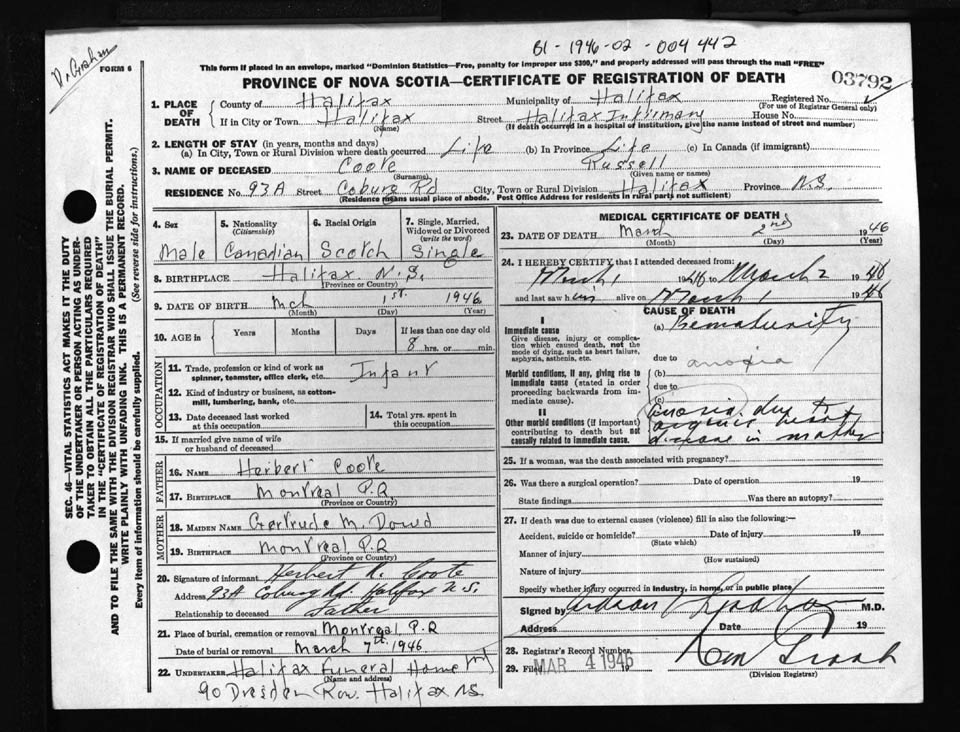 B1-1946-02-004442
Dr Graham
FORM 6
This form if placed in an envelope, marked "Dominion Statistics—Free, penalty for improper use $300," and properly addressed will pass through the mail "FREE"
PROVINCE OF NOVA SCOTIA—CERTIFICATE OF REGISTRATION OF DEATH
03792
SEC. 46—VITAL STATISTICS ACT MAKES IT THE DUTY
OF THE UNDERTAKER OR PERSON ACTING AS UNDER-
TAKER TO OBTAIN ALL THE PARTICULARS REQUIRED
IN THE "CERTIFICATE OF REGISTRATION OF DEATH"
AND TO FILE THE SAME WITH THE DIVISION REGISTRAR WHO SHALL ISSUE THE BURIAL PERMIT.
WRITE PLAINLY WITH UNFADING INK. THIS IS A PERMANENT RECORD.
Every item of information should be carefully supplied. (See reverse side for instructions.)
1. PLACE OF DEATH
County of Halifax Municipality of Halifax Registered No.
(For use of Registrar General only)
If in City or Town Halifax Street Halifax Infirmary House No.
(Name) (If death occurred in a hospital or institution, give the name instead of street and number)
2. LENGTH OF STAY (in years, months and days)
(a) In City, Town or Rural Division where death occurred Life (b) In Province Life (c) In Canada (if immigrant)
3. NAME OF DECEASED Coote Russell
(Surname) (Given name or names)
RESIDENCE No. 93A Street Coburg Rd City, Town or Rural Division Halifax Province N.S.
(Residence means usual place of abode. Post Office Address for residents in rural parts not sufficient)
4. Sex Male
5. Nationality (Citizenship) Canadian
6. Racial Origin Scotch
7. Single, Married, Widowed or Divorced (write the word) Single
8. BIRTHPLACE Halifax N.S.
(Province or Country)
9. DATE OF BIRTH Mch 1st 1946
(Month) (Day) (Year)
10. AGE in Years Months Days If less than one day old
8 hrs. or min.
OCCUPATION
11. Trade, profession or kind of work as spinner, teamster, office clerk, etc. Infant
12. Kind of industry or business, as cotton-mill, lumbering, bank, etc.
13. Date deceased last worked at this occupation
14. Total yrs. spent in this occupation
15. If married give name of wife or husband of deceased
FATHER
16. NAME Herbert Coote
17. BIRTHPLACE Montreal P.Q
(Province or Country)
MOTHER
18. MAIDEN NAME Gertrude M. Dowd
19. BIRTHPLACE Montreal P.Q
(Province or Country)
20. Signature of informant Herbert R. Coote
Address 93A Coburg Rd. Halifax N.S.
Relationship to deceased Father
21. Place of burial, cremation or removal Montreal P.Q
Date of burial or removal March 7th 1946
22. UNDERTAKER Halifax Funeral Home
(Name and address)
90 Dresden Row. Halifax NS
MEDICAL CERTIFICATE OF DEATH
23. DATE OF DEATH March 2nd 1946
(Month) (Day) (Year)
24. I HEREBY CERTIFY that I attended deceased from:
March 1 1946 to March 2 1946
and last saw him alive on March 1 1946
CAUSE OF DEATH
I
Immediate cause
Give disease, injury or complication which caused death, not the mode of dying, such as heart failure, asphyxia, asthenia, etc.
(a) Prematurity
due to
Morbid conditions, if any, giving rise to immediate cause (stated in order proceeding backwards from immediate cause).
(b) anoxia
due to
(c)
II
Other morbid conditions (if important) contributing to death but not causally related to immediate cause.
anoxia due to
heart
disease in mother
25. If a woman, was the death associated with pregnancy?
26. Was there a surgical operation? Date of operation 19
State findings Was there an autopsy?
27. If death was due to external causes (violence) fill in also the following:—
Accident, suicide or homicide? Date of injury 19
(State which)
Manner of injury
(How sustained)
Nature of injury
Specify whether injury occurred in industry, in home, or in public place
Signed by M.D.
Address Date 19
28. Registrar's Record Number
29. Filed MAR 4 1946
(Division Registrar)